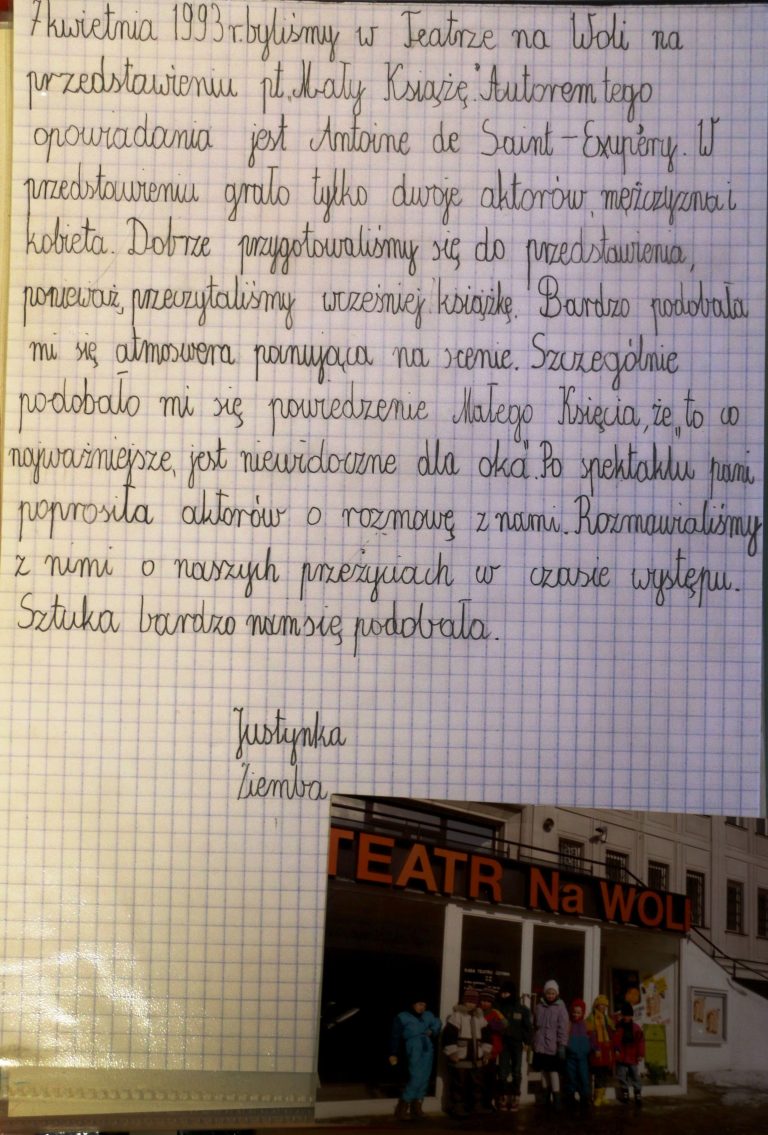 7 kwietnia 1993 r. byliśmy w Teatrze na Woli na
przedstawieniu pt. „Mały Książę." Autorem tego
opowiadania jest Antoine de Saint-Exupéry. W
przedstawieniu grało tylko dwoje aktorów, mężczyzna i
kobieta. Dobrze przygotowaliśmy się do przedstawienia,
ponieważ, przeczytaliśmy wcześniej książkę. Bardzo podobała
mi się atmoswera panująca na scenie. Szczególnie
podobało mi się powiedzenie Małego Księcia, że „to co
najważniejsze, jest niewidoczne dla oka". Po spektaklu pani
poprosiła aktorów o rozmowę z nami. Rozmawialiśmy
z nimi o naszych przeżyciach w czasie występu.
Sztuka bardzo nam się podobała.
Justynka
Ziemba
TEATR Na WOLI